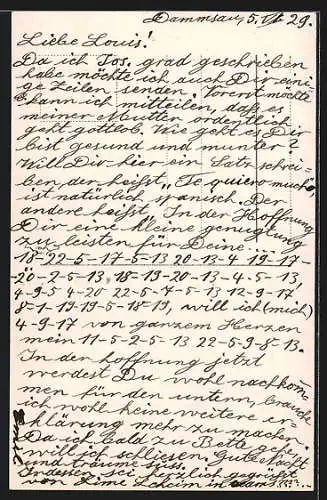 Dammsau, 5. VI 29.
Liebe Louis!
Da ich Jos. grad geschrieben
habe möchte ich auch Dir eini=
ge Zeilen senden. Vorerst möchte
kann ich mitteilen, daß es
meiner Mutter ordentlich
geht gottlob. Wie geht es Dir
bist gesund und munter?
Will Dir hier ein Satz schrei=
ben der heißt „Te quiero mucho",
ist natürlich spanisch. Der
andere heißt. In der Hoffnung
Dir eine kleine genugtung
zu leisten für Deine
18-22-5-17-5-13 20-13-4 19-17-
-20-2-5-13 18-19-20-13-4-5-13,
4-9-5 4-20 22-5-7-5-13 12-9-17
8-1-19-19-5-18-19, will ich (mich)
4-9-17 von ganzem Herzen
mein 11-5-2-5-13 22-5-9-8-13.
In der hoffnung jetzt
werdest Du wohl nachkom=
men für den untern, brauche
ich wohl keine weitere er=
klärung mehr zu machen.
Da ich bald zu Bette gehe
will ich schliesen. Gute Nacht
und träume süss.
Indessen sei herzlich gegrüsst
von